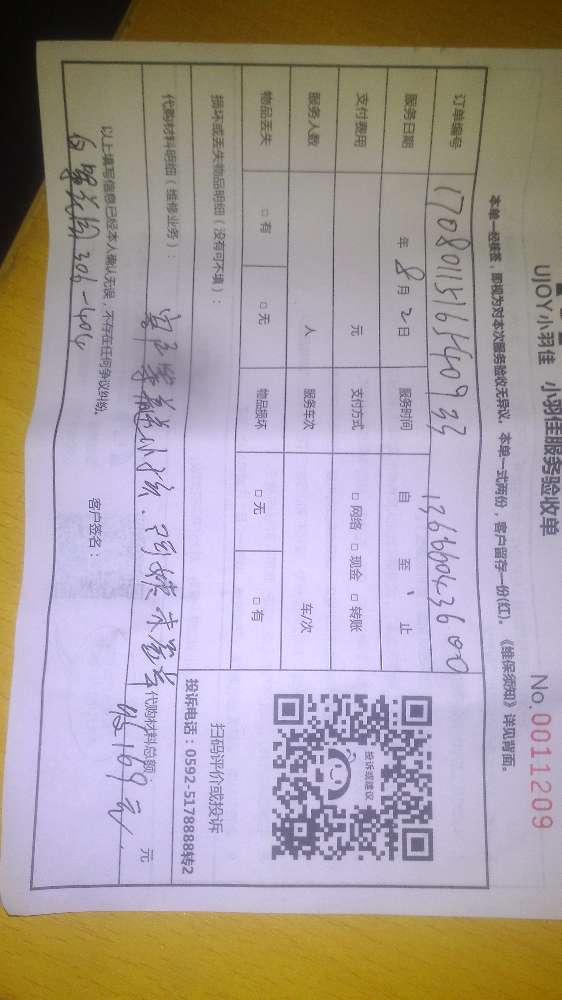 UJOY小羽佳 小羽佳服务验收单
No.0011209
本单一经核签,即视为对本次服务验收无异议。本单一式两份,客户留存一份(红)。《维保须知》详见背面。
订单编号
服务日期 年 8 月 2 日 服务时间 自 至 止
支付费用 元 支付方式 □ 网络 □ 现金 □ 转账
服务人数 人 服务车次 车/次
物品丢失 □ 有 □ 无 物品损坏 □ 无 □ 有
损坏或丢失物品明细(没有可不填):
投诉或建议
扫码评价或投诉
投诉电话:0592-5178888转2
代购材料明细(维修业务):
代购材料总额 169 元
以上填写信息已经本人确认无误,不存在任何争议纠纷。
客户签名: